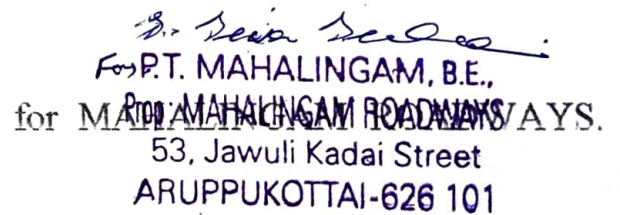 For P.T. MAHALINGAM, B.E.,
for MAHALINGAM ROADWAYS.
Prop: MAHALINGAM ROADWAYS
53, Jawuli Kadai Street
ARUPPUKOTTAI-626 101